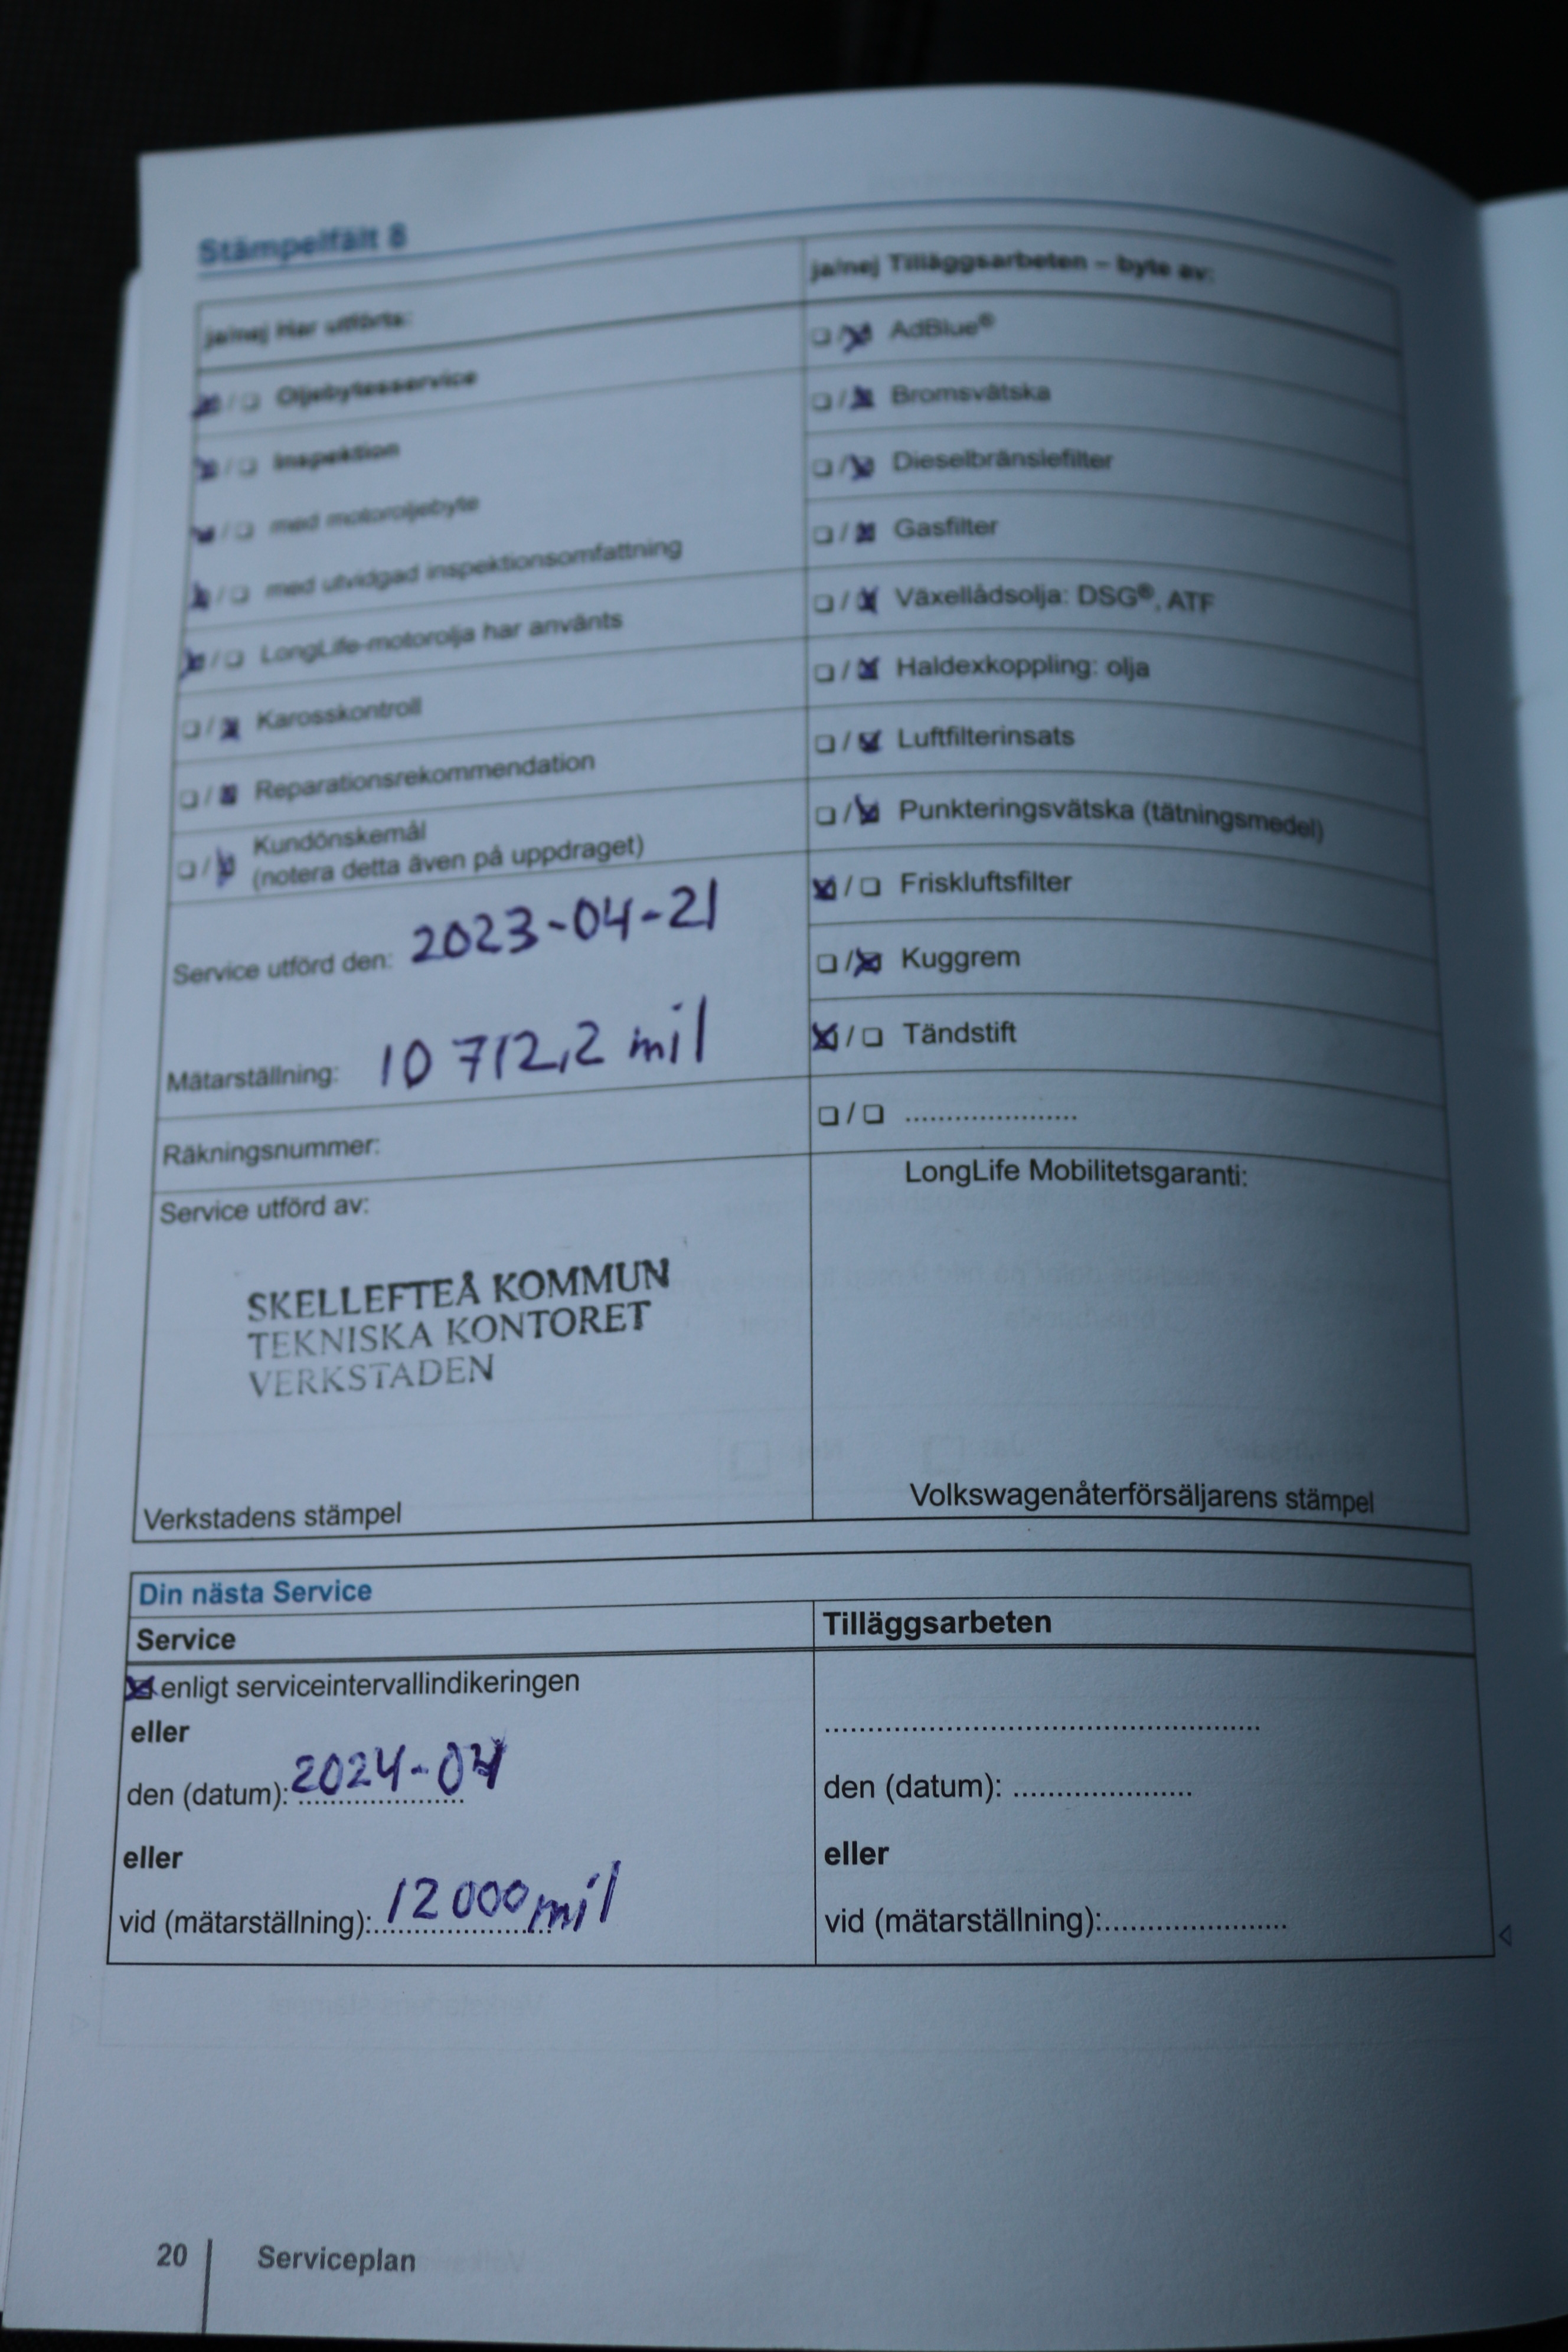 Stämpelfält 8
ja/nej Har utförts:
Oljebytesservice
Inspektion
med motoroljebyte
med utvidgad inspektionsomfattning
LongLife-motorolja har använts
Karosskontroll
Reparationsrekommendation
Kundönskemål
(notera detta även på uppdraget)
Service utförd den: 2023-04-21
Mätarställning: 10 712,2 mil
Räkningsnummer:
Service utförd av:
SKELLEFTEÅ KOMMUN
TEKNISKA KONTORET
VERKSTADEN
Verkstadens stämpel
ja/nej Tilläggsarbeten – byte av:
AdBlue®
Bromsvätska
Dieselbränslefilter
Gasfilter
Växellådsolja: DSG®, ATF
Haldexkoppling: olja
Luftfilterinsats
Punkteringsvätska (tätningsmedel)
Friskluftsfilter
Kuggrem
Tändstift
LongLife Mobilitetsgaranti:
Volkswagenåterförsäljarens stämpel
Din nästa Service
Service
enligt serviceintervallindikeringen
eller
den (datum): 2024-04
eller
vid (mätarställning): 12 000 mil
Tilläggsarbeten
den (datum):
eller
vid (mätarställning):
20 Serviceplan